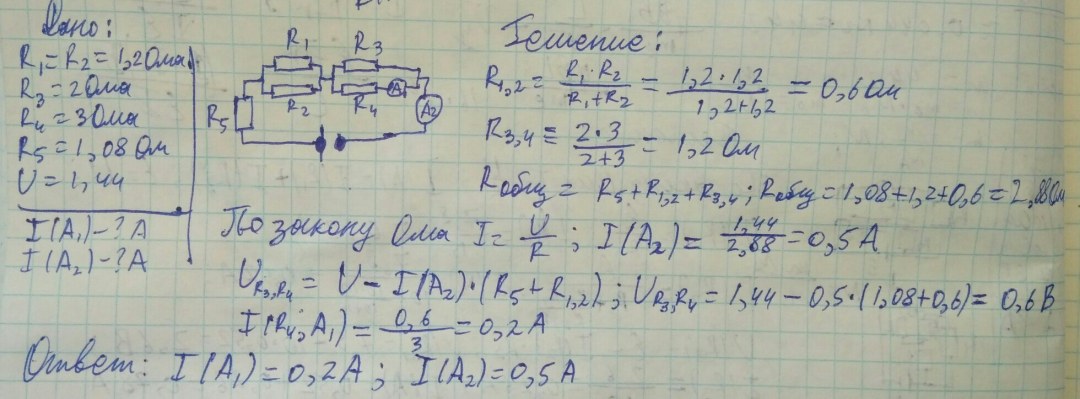 Дано:
R₁=R₂=1,2 Ома
R₃=2 Ома
R₄=3 Ома
R₅=1,08 Ом
U=1,44
I(A₁)-? A
I(A₂)-? A
R₁ R₃
R₂ R₄ A₁ A₂
R₅
Решение:
R₁,₂ = R₁·R₂/R₁+R₂ = 1,2·1,2/1,2+1,2 = 0,6 Ом
R₃,₄ = 2·3/2+3 = 1,2 Ом
Rобщ = R₅+R₁,₂+R₃,₄; Rобщ=1,08+1,2+0,6=2,88 Ом
По закону Ома I=U/R; I(A₂)=1,44/2,88=0,5 A
U_R₃,R₄ = U - I(A₂)·(R₅+R₁,₂); U_R₃R₄=1,44-0,5·(1,08+0,6)=0,6 В
I(R₄;A₁)=0,6/3=0,2 A
Ответ: I(A₁)=0,2 A; I(A₂)=0,5 A